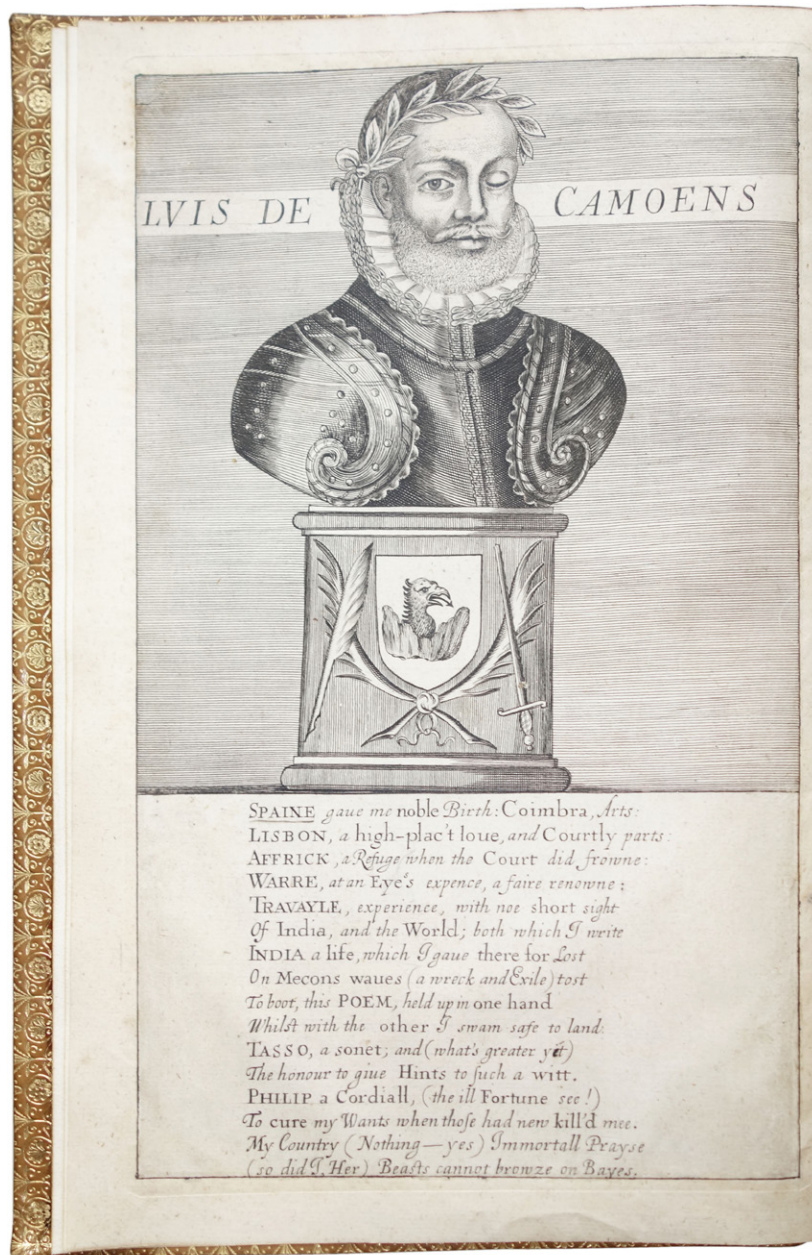 LVIS DE CAMOENS
SPAINE gaue me noble Birth: Coimbra, Arts:
LISBON, a high-plac't loue, and Courtly parts:
AFFRICK, a Refuge when the Court did frowne:
WARRE, at an Eye's expence, a faire renowne:
TRAVAYLE, experience, with noe short sight
Of India, and the World; both which I write
INDIA a life, which I gaue there for Lost
On Mecons waues (a wreck and Exile) tost
To boot, this POEM, held up in one hand
Whilst with the other I swam safe to land:
TASSO, a sonet; and (what's greater yet)
The honour to giue Hints to ſuch a witt.
PHILIP a Cordiall, (the ill Fortune see!)
To cure my Wants when thoſe had new kill'd mee.
My Country (Nothing—yes) Immortall Prayse
(so did I, Her) Beasts cannot browze on Bayes.